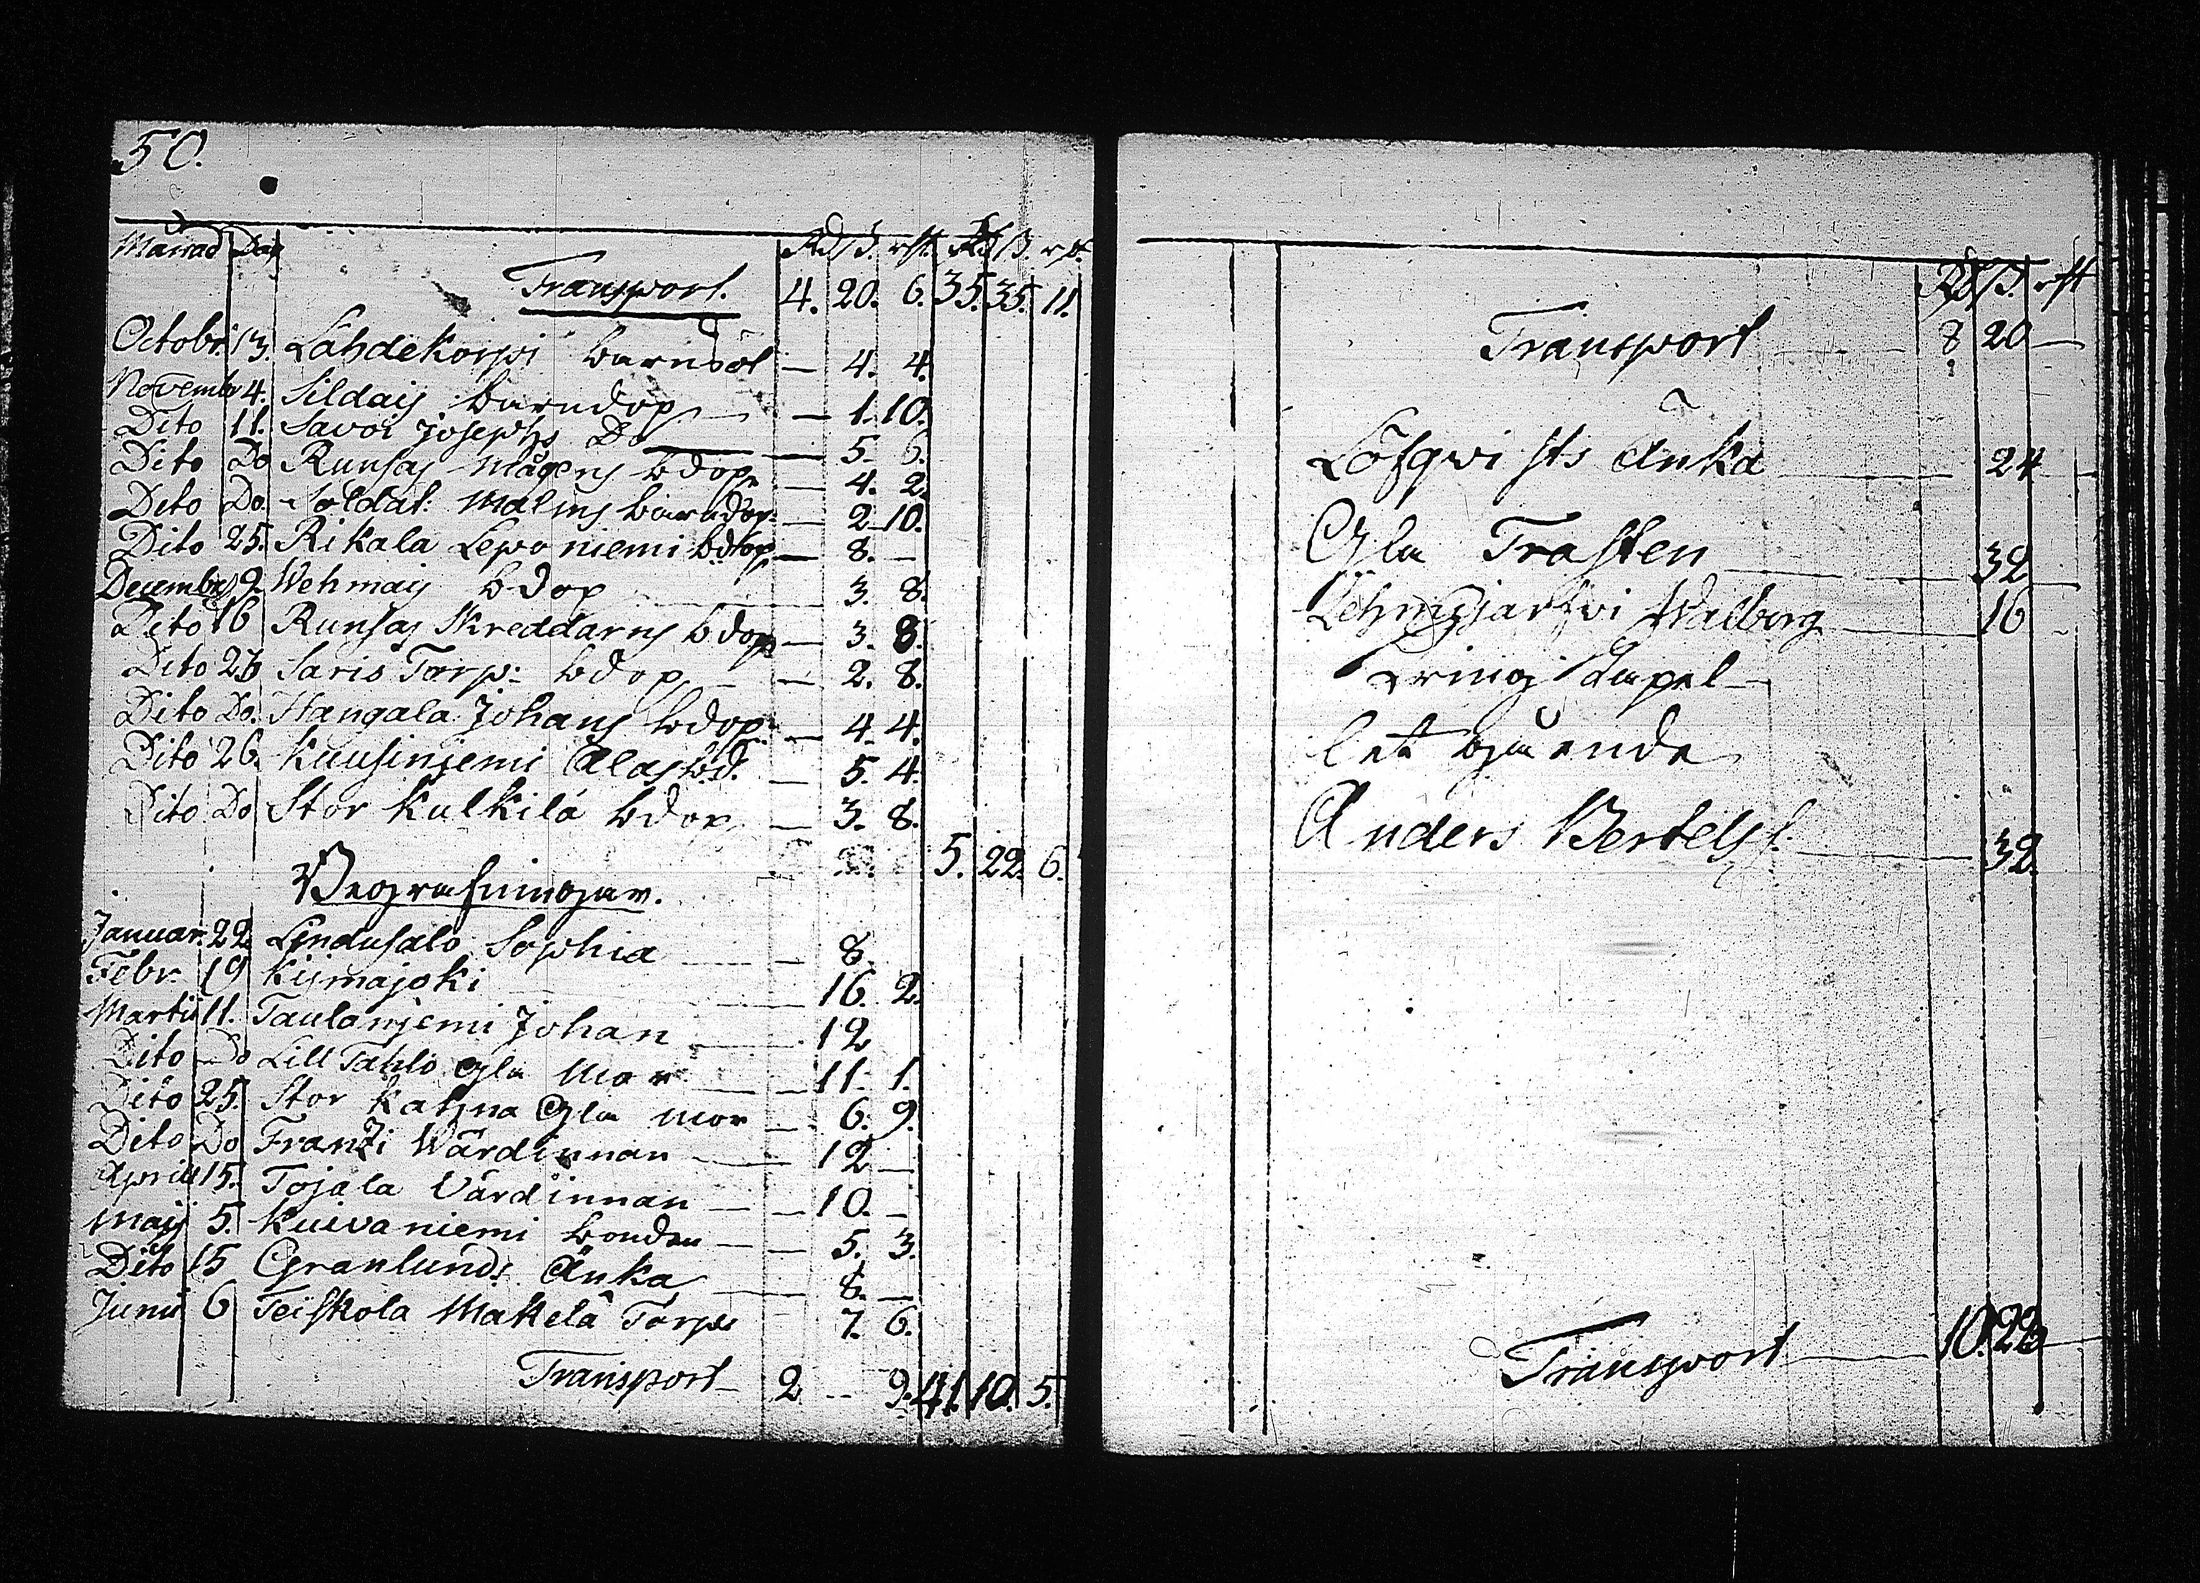 50.
Månad Dag Rd ß. rst. Rd ß. rst.
Transport. 4. 20. 6. 35. 35. 11.
Octobr. 13. Lähdekorpi barnsöl — 4. 4.
Novembr 4. Sildais barndop — 1. 10.
Dito 11. Savoi Josephs Do — 5. 6.
Dito Do Runsas Mågens bdop — 4. 2.
Dito Do. Soldat: Malms barndop — 2. 10.
Dito 25. Rikala Leponiemi bdop — 8. —
Decembr 9. Wehmais bdop 3. 8.
Dito 16 Runsas Skreddarns bdop — 3. 8.
Dito 26 Saris Torp: bdop — 2. 8.
Dito Do. Hangala Johans bdop — 4. 4.
Dito 26. Kuusiniemi Alas bd. — 5. 4.
Dito Do Stor Kulkila bdop — 3. 8.
5. 22. 6.
Begrafningar.
Januar. 22 Lindusalo Sophia — 8.
Febr. 19 Kijmajoki — 16. 2.
Martii 11. Taulaniemi Johan — 12
Dito Do Lill Tahlo gla Mor — 11. 1.
Dito 25. Stor Katzna Gla mor — 6. 9.
Dito Do Franzi Wärdinnan — 12 —
Aprill 15. Tojala Värdinnan — 10. —
Maij 5. Kuivaniemi bonden — 5. 3.
Dito 15 Granlunds Änka — 8. —
Junii 6 Teiskola Makelä Torps 7. 6.
Transport — 2 — 9. 41. 10. 5.
Rd ß. rst
Transport 8 20 —
Löfqvists Änka 24 —
Gla Trasten 32 —
Walborg 16 —
kring Capel-
let boende
Anders Bertelss. 32.
Transport — 10. 28 —